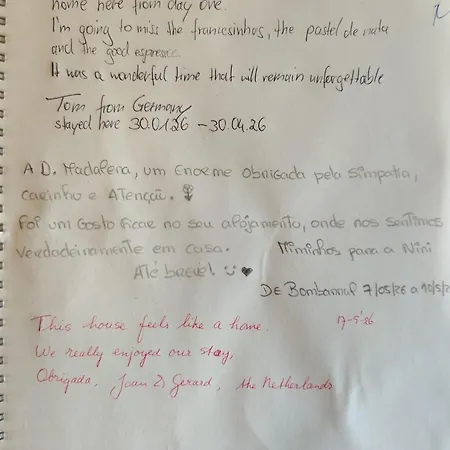 home here from day one.
I'm going to miss the francesinhas, the pastel de nata
and the good espresso.
It was a wonderful time that will remain unforgettable
Tom from Germany
stayed here 30.01.26 – 30.04.26
A D. Madalena, um enorme obrigada pela simpatia,
carinho e Atenção.
Foi um gosto ficar no seu alojamento, onde nos sentimos
verdadeiramente em casa. Miminhos para a Nini
Até breve!
De Bombarral 7/05/26 a 10/5/2
This house feels like a home. 17-5-'26
We really enjoyed our stay,
Obrigada, Joan & Gerard, the Netherlands